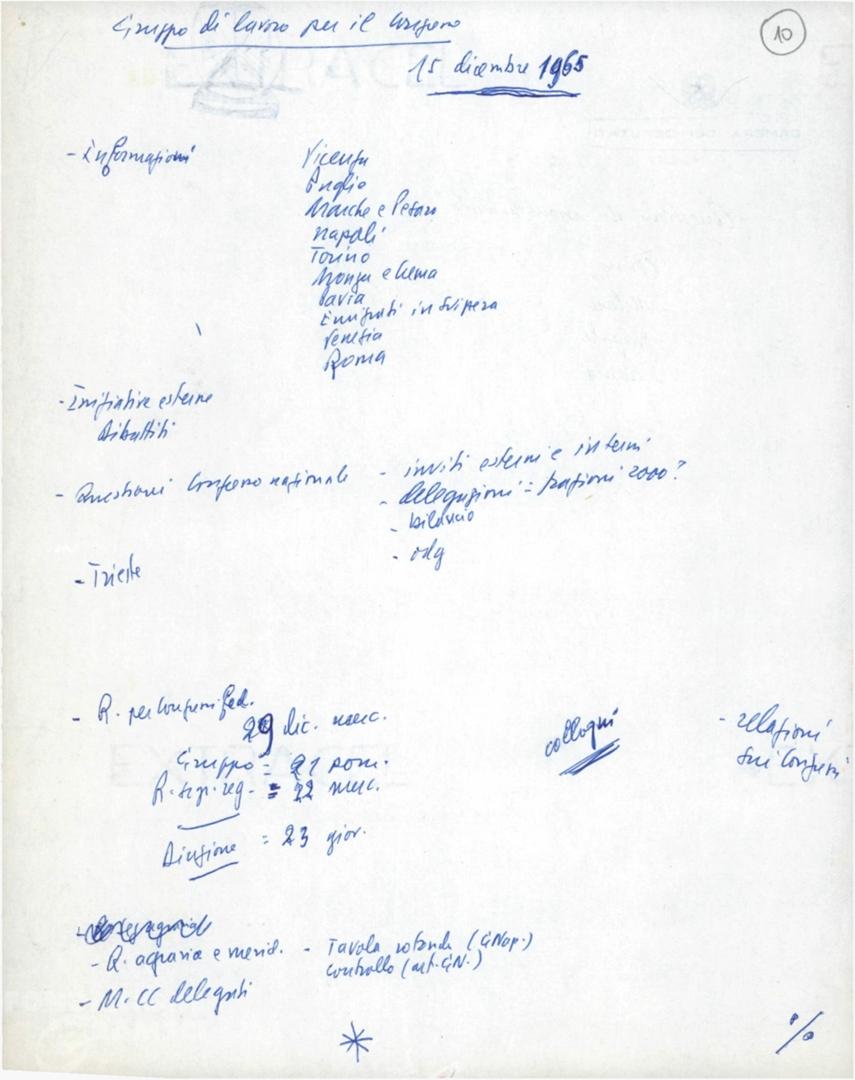 10
Gruppo di lavoro per il Congresso
15 dicembre 1965
- Informazioni
Vicenza
Puglie
Marche e Pesaro
Napoli
Torino
Monza e Crema
Pavia
Emigrati in Svizzera
Venezia
Roma
- Iniziative esterne
Dibattiti
- Questioni Congresso nazionale
- inviti esterni e interni
- delegazioni = frazioni 2000?
- bilancio
- odg
- Trieste
- R. per Congressi fed.
29 dic. merc.
Gruppo = 21 pom.
R. segr. reg. = 22 merc.
Direzione = 23 giov.
colloqui
- relazioni
sui Congressi
- R. agraria e merid.
- Tavola rotonda (GNap.)
controllo (art. GN.)
- M. CC delegati
*
%